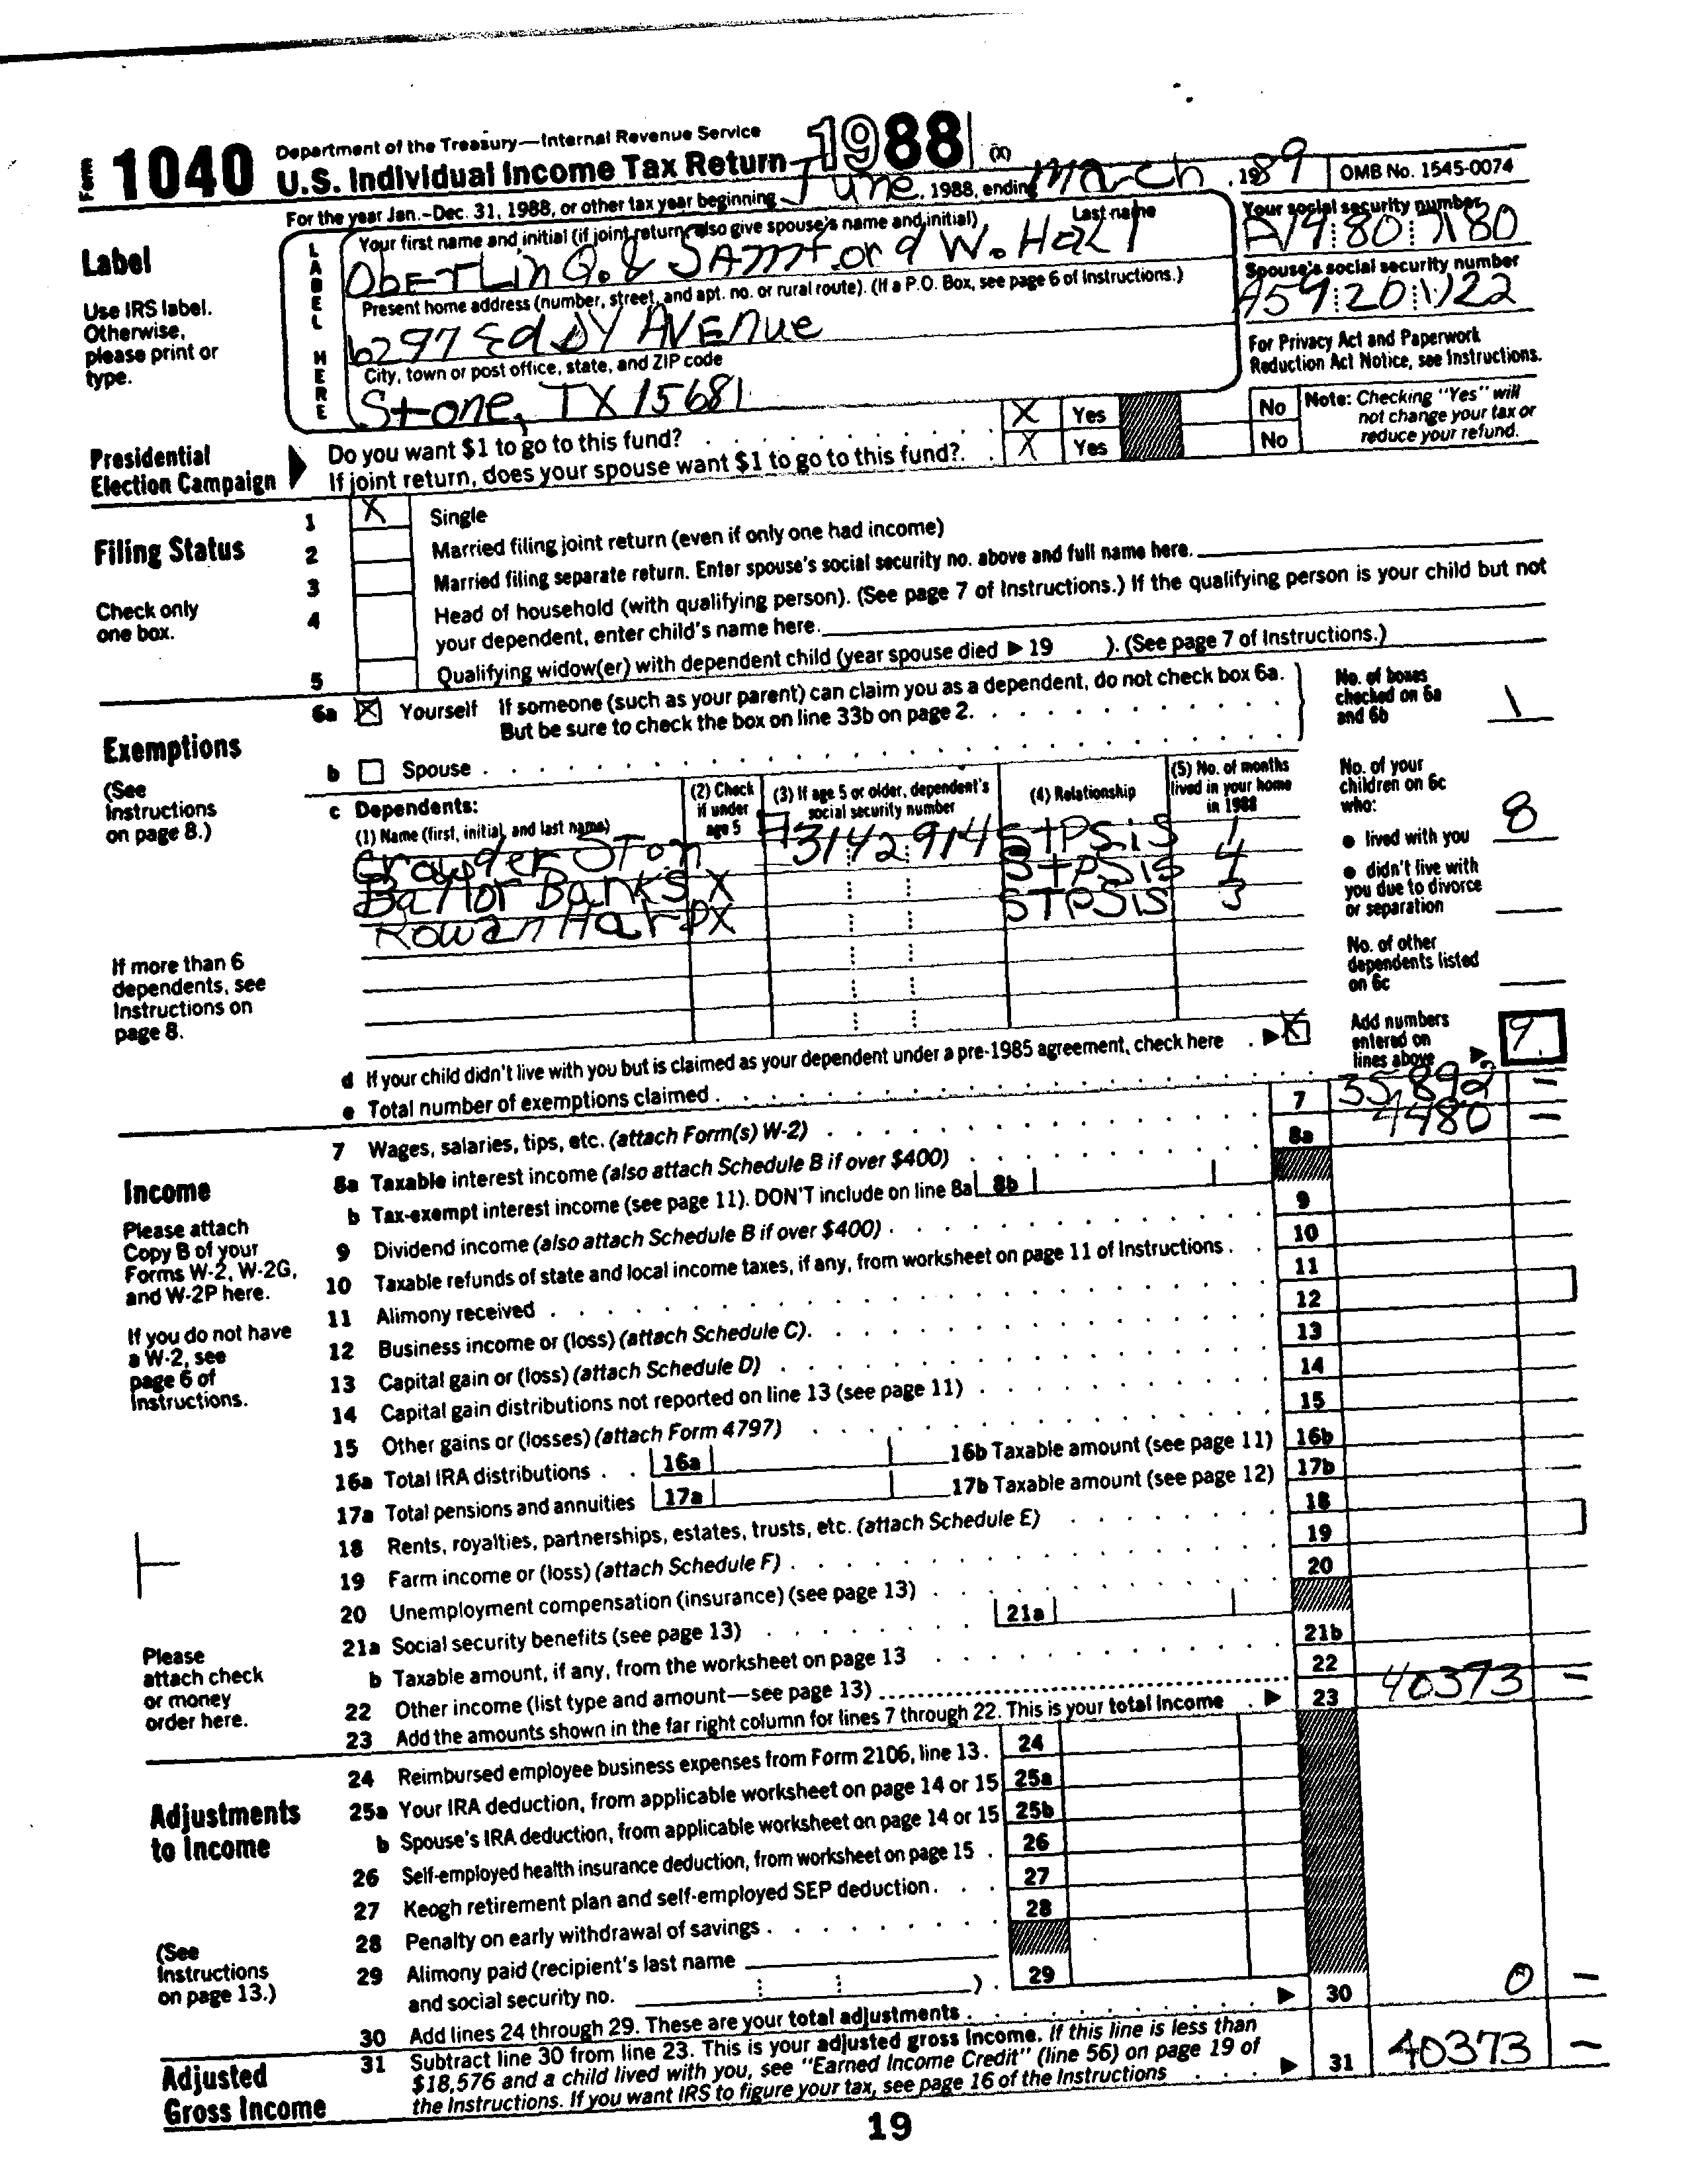 Form 1040 Department of the Treasury—Internal Revenue Service
U.S. Individual Income Tax Return 1988 (X)
For the year Jan.-Dec. 31, 1988, or other tax year beginning June, 1988, ending March, 1989 OMB No. 1545-0074
Label
Use IRS label. Otherwise, please print or type.
LABEL HERE
Your first name and initial (if joint return, also give spouse's name and initial) Last name
W. Hall
Your social security number
Present home address (number, street, and apt. no. or rural route). (If a P.O. Box, see page 6 of Instructions.)
6297 Eddy Avenue
Spouse's social security number
City, town or post office, state, and ZIP code
Stone, TX 15681
For Privacy Act and Paperwork Reduction Act Notice, see Instructions.
Presidential Election Campaign
Do you want $1 to go to this fund? X Yes No
If joint return, does your spouse want $1 to go to this fund?. X Yes No
Note: Checking "Yes" will not change your tax or reduce your refund.
Filing Status
Check only one box.
1 X Single
2 Married filing joint return (even if only one had income)
3 Married filing separate return. Enter spouse's social security no. above and full name here.
4 Head of household (with qualifying person). (See page 7 of Instructions.) If the qualifying person is your child but not
your dependent, enter child's name here.
5 Qualifying widow(er) with dependent child (year spouse died ▶ 19 ). (See page 7 of Instructions.)
Exemptions
(See Instructions on page 8.)
6a X Yourself If someone (such as your parent) can claim you as a dependent, do not check box 6a.
But be sure to check the box on line 33b on page 2.
No. of boxes checked on 6a and 6b 1
b Spouse
c Dependents:
(1) Name (first, initial, and last name)
(2) Check if under age 5
(3) If age 5 or older, dependent's social security number
(4) Relationship
(5) No. of months lived in your home in 1988
STPSIS 1
Banks X STPSIS 4
Rowan Harp X STPSIS 3
No. of your children on 6c who:
● lived with you 8
● didn't live with you due to divorce or separation
No. of other dependents listed on 6c
If more than 6 dependents, see Instructions on page 8.
d If your child didn't live with you but is claimed as your dependent under a pre-1985 agreement, check here ▶ X
e Total number of exemptions claimed
Add numbers entered on lines above ▶ 9
Income
Please attach Copy B of your Forms W-2, W-2G, and W-2P here.
If you do not have a W-2, see page 6 of Instructions.
Please attach check or money order here.
7 Wages, salaries, tips, etc. (attach Form(s) W-2) 7 35,892 —
8a Taxable interest income (also attach Schedule B if over $400) 8a 4480 —
b Tax-exempt interest income (see page 11). DON'T include on line 8a 8b
9 Dividend income (also attach Schedule B if over $400) 9
10 Taxable refunds of state and local income taxes, if any, from worksheet on page 11 of Instructions 10
11 Alimony received 11
12 Business income or (loss) (attach Schedule C) 12
13 Capital gain or (loss) (attach Schedule D) 13
14 Capital gain distributions not reported on line 13 (see page 11) 14
15 Other gains or (losses) (attach Form 4797) 15
16a Total IRA distributions 16a 16b Taxable amount (see page 11) 16b
17a Total pensions and annuities 17a 17b Taxable amount (see page 12) 17b
18 Rents, royalties, partnerships, estates, trusts, etc. (attach Schedule E) 18
19 Farm income or (loss) (attach Schedule F) 19
20 Unemployment compensation (insurance) (see page 13) 20
21a Social security benefits (see page 13) 21a
b Taxable amount, if any, from the worksheet on page 13 21b
22 Other income (list type and amount—see page 13) 22
23 Add the amounts shown in the far right column for lines 7 through 22. This is your total income ▶ 23 40373 —
Adjustments to Income
(See Instructions on page 13.)
24 Reimbursed employee business expenses from Form 2106, line 13. 24
25a Your IRA deduction, from applicable worksheet on page 14 or 15 25a
b Spouse's IRA deduction, from applicable worksheet on page 14 or 15 25b
26 Self-employed health insurance deduction, from worksheet on page 15 26
27 Keogh retirement plan and self-employed SEP deduction 27
28 Penalty on early withdrawal of savings 28
29 Alimony paid (recipient's last name
and social security no. ) 29
30 Add lines 24 through 29. These are your total adjustments ▶ 30 0 —
Adjusted Gross Income
31 Subtract line 30 from line 23. This is your adjusted gross income. If this line is less than
$18,576 and a child lived with you, see "Earned Income Credit" (line 56) on page 19 of
the Instructions. If you want IRS to figure your tax, see page 16 of the Instructions ▶ 31 40373 —
19